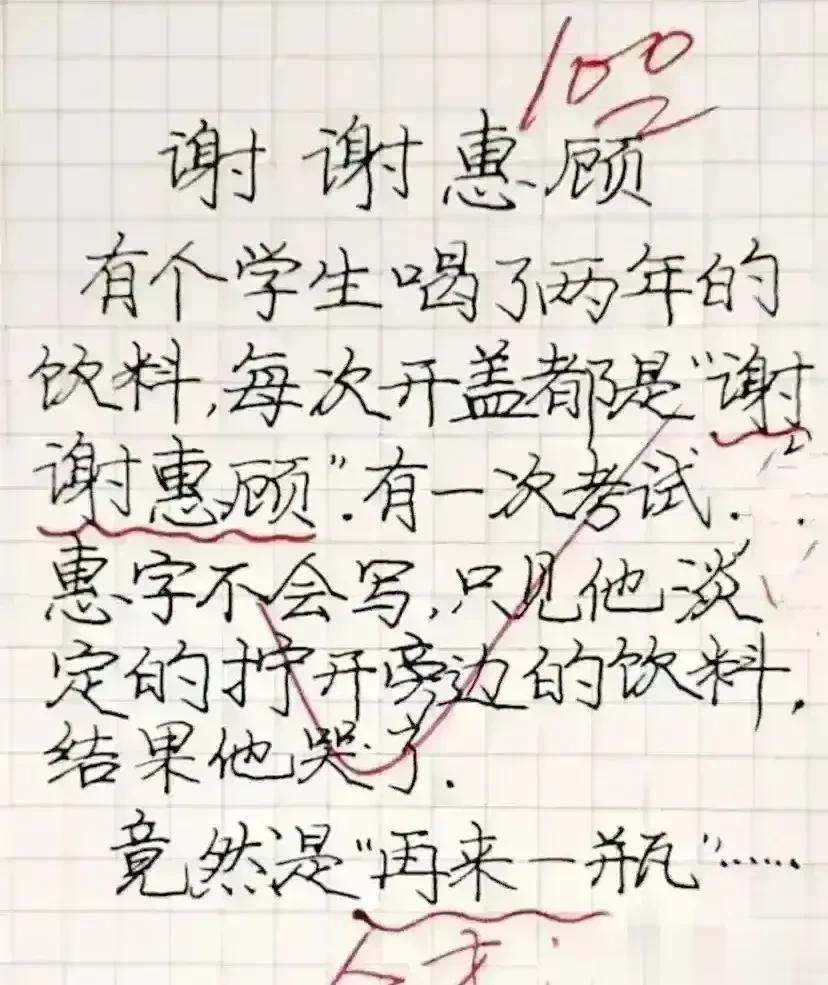 100
谢谢惠顾
有个学生喝了两年的
饮料,每次开盖都是“谢
谢惠顾”.有一次考试.
惠字不会写,只见他淡
定的拧开旁边的饮料,
结果他哭了.
竟然是“再来一瓶”……